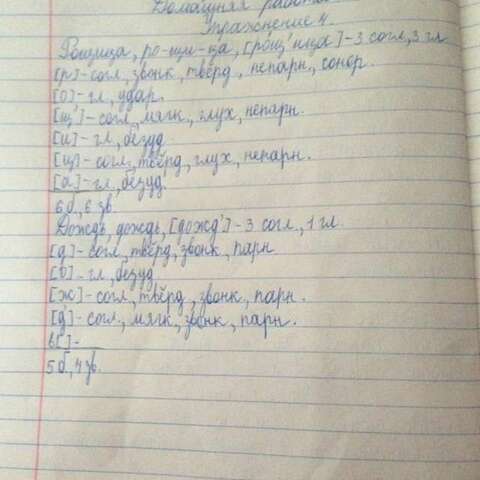 Домашняя работа.
Упражнение 4.
Рощица, ро-щи-ца, [рощ'ица]-3 согл, 3 гл
[р]-согл, звонк, твёрд, непарн, сонор.
[о]-гл, удар.
[щ']-согл, мягк, глух, непарн.
[и]-гл, безуд
[ц]-согл, твёрд, глух, непарн.
[а]-гл, безуд,
6 б, 6 зв.
Дождь, дождь, [дожд']-3 согл, 1 гл.
[д]-согл, твёрд, звонк, парн
[о]-гл, безуд
[ж]-согл, твёрд, звонк, парн.
[д']-согл, мягк, звонк, парн.
ь[ ]-
5 б, 4 зв.